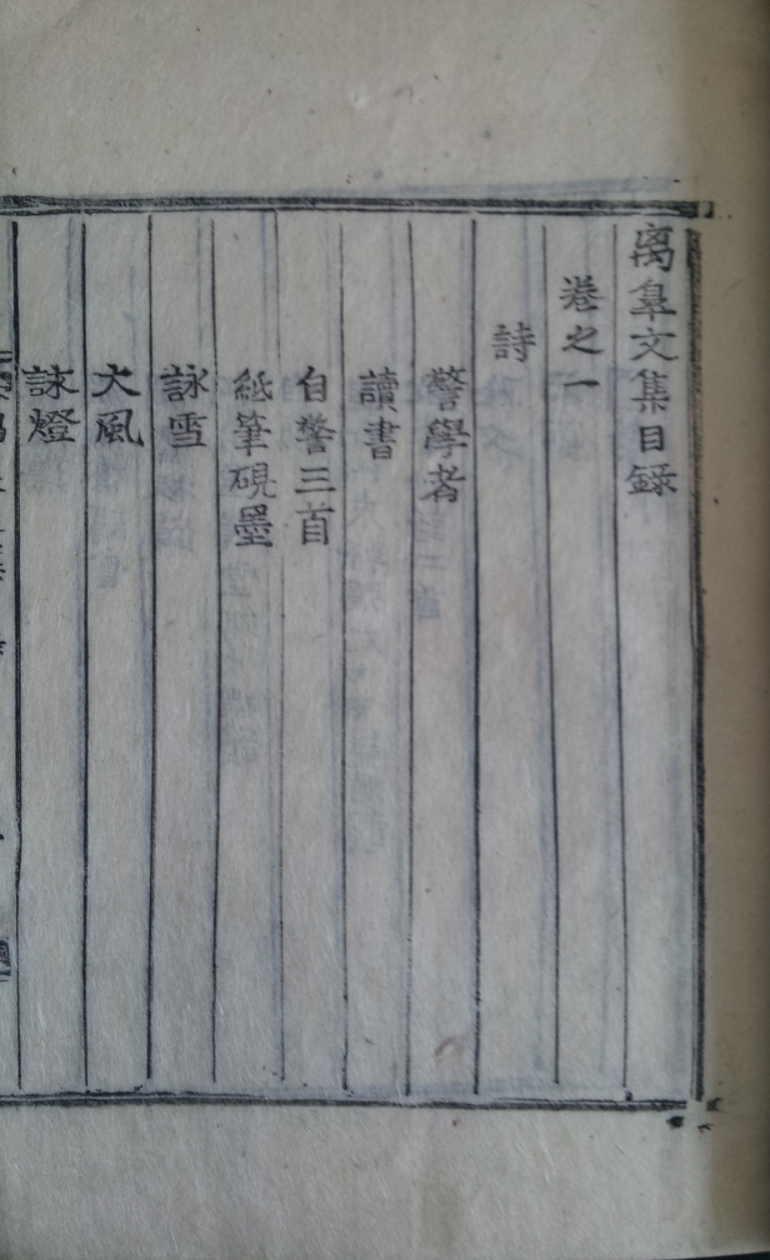 离皐文集目録
卷之一
詩
警學者
讀書
自警三首
紙筆硯墨
詠雪
大風
詠燈